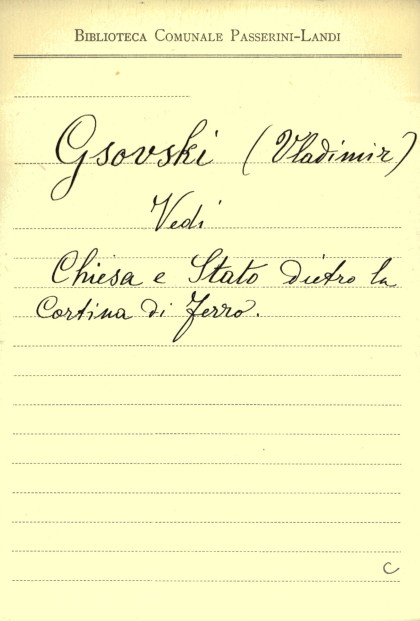 BIBLIOTECA COMUNALE PASSERINI-LANDI
Gsovski (Vladimir)
Vedi
Chiesa e Stato dietro la
Cortina di Ferro.
C